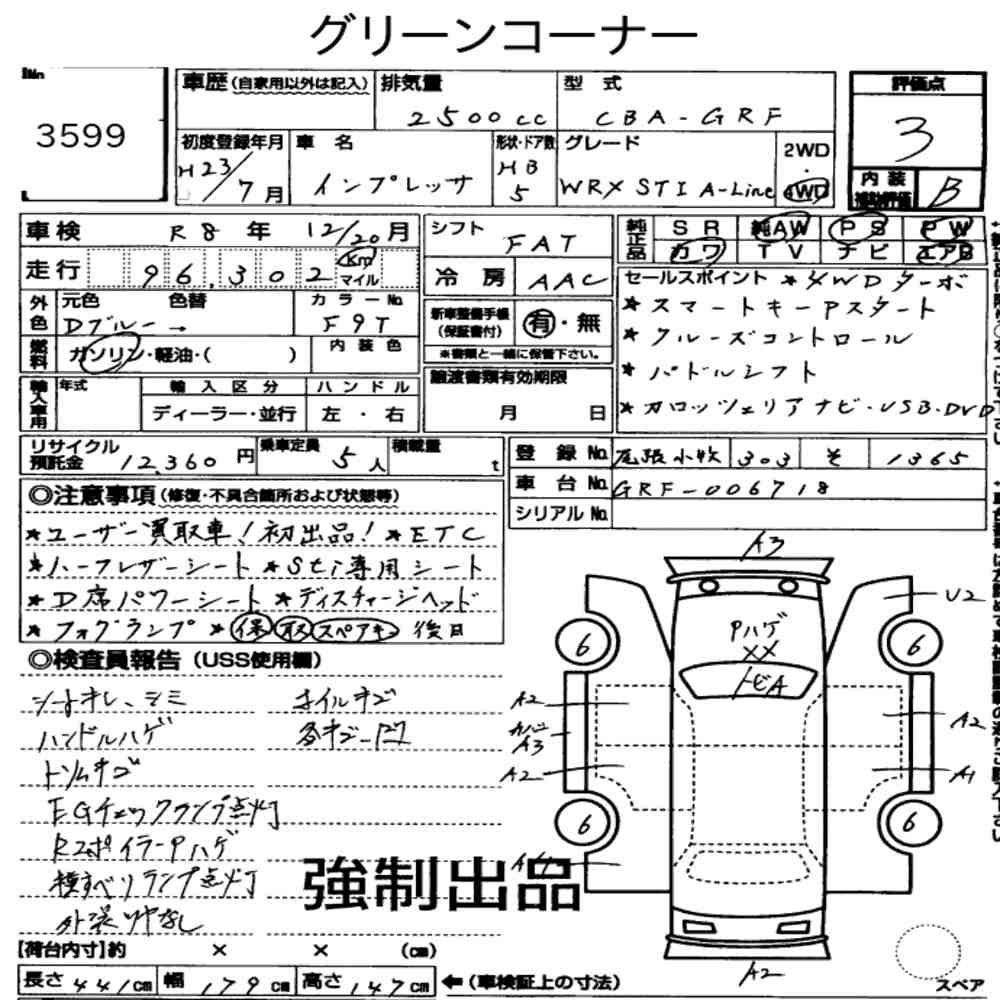 グリーンコーナー
No
3599
車歴(自家用以外は記入) 排気量 2500cc 型式 CBA-GRF
評価点 3
初度登録年月 H23/7月 車名 インプレッサ 形状・ドア数 HB 5 グレード WRX STI A-Line 2WD・4WD
内装補助評価 B
車検 R8年 12/20月
走行 96,302 Km マイル
外色 元色 Dブルー → 色替 カラーNo F9T
燃料 ガソリン・軽油・( ) 内装色
輸入車用 年式 輸入区分 ディーラー・並行 ハンドル 左・右
シフト FAT
冷房 AAC
新車整備手帳(保証書付) 有・無
※書類と一緒に保管下さい。
譲渡書類有効期限
月 日
純正品 SR 純AW PS PW
カワ TV ナビ エアB
セールスポイント ★4WDターボ
★スマートキーPスタート
★クルーズコントロール
★パドルシフト
★カロッツェリアナビ・USB・DVD
リサイクル預託金 12,360円 乗車定員 5人 積載量 t
登録No. 尾張小牧 303 そ 1365
車台No. GRF-006718
シリアルNo.
◎注意事項(修復・不具合箇所および状態等)
★ユーザー買取車!初出品! ★ETC
★ハーフレザーシート ★Sti専用シート
★D席パワーシート ★ディスチャージヘッド
★フォグランプ ★保 取 スペアキー 後日
◎検査員報告(USS使用欄)
シートオレ、シミ ホイルキズ
ハンドルハゲ 各キズ凹
トリムキズ
EGチェックランプ点灯
RスポイラーPハゲ
横すべりランプ点灯
強制出品
A3
U2
Pハゲ
XX
トビA
6
6
A2
A2
カバー
A3
A2
A1
6
6
A2
スペア
【荷台内寸】約 × × (cm)
長さ 441cm 幅 179cm 高さ 147cm ←(車検証上の寸法)